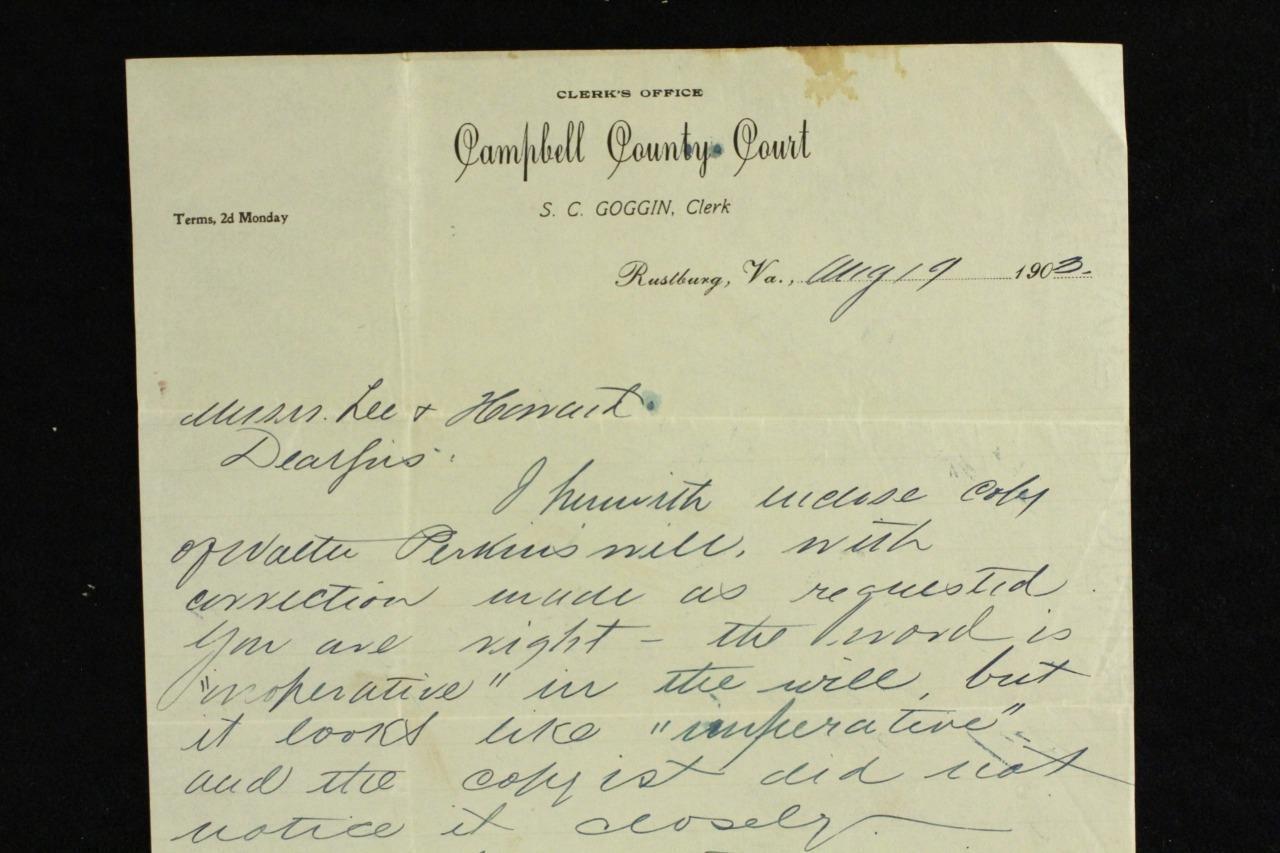 CLERK'S OFFICE
Campbell County Court
S. C. GOGGIN, Clerk
Terms, 2d Monday
Rustburg, Va., Aug 19 1903.
Messrs. Lee & Howard.
Dear Sirs:
I herewith inclose copy
of Walter Perkins will, with
correction made as requested.
You are right - the word is
"inoperative" in the will, but
it looks like "imperative"
and the copyist did not
notice it closely.